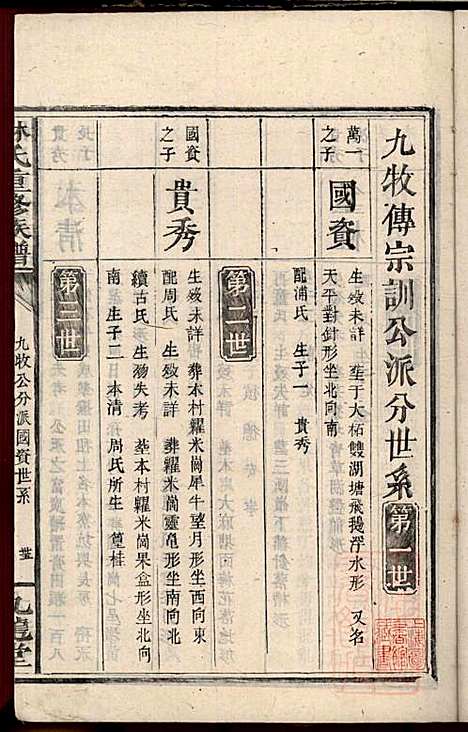 九牧傳宗訓公派分世系 第一世
萬一
之子
國資
生歿未詳 塟于大柘雙湖塘飛鵝浮水形 又名
天平對針形坐北向南
配浦氏 生子一 貴秀
第二世
國資
之子
貴秀
生歿未詳 葬本村糶米崗犀牛望月形坐西向東
配周氏 生歿未詳 葬糶米崗靈龟形坐南向北
續古氏 生歿失考 塟本村糶米崗果盒形坐北向
南 生子二曰本清 周氏所生 篁桂
第三世
林氏重修族譜
九牧公分派國資世系